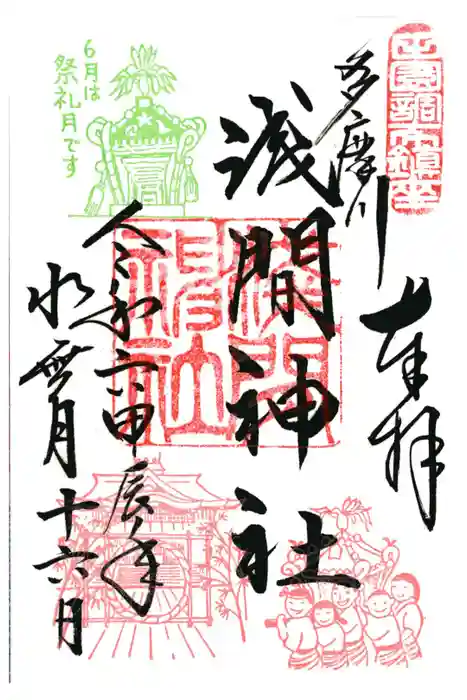 田園調布鎮座
奉拝
多摩川
浅間神社
淺間
神社
令和六甲辰年
水無月十六日
6月は
祭礼月です